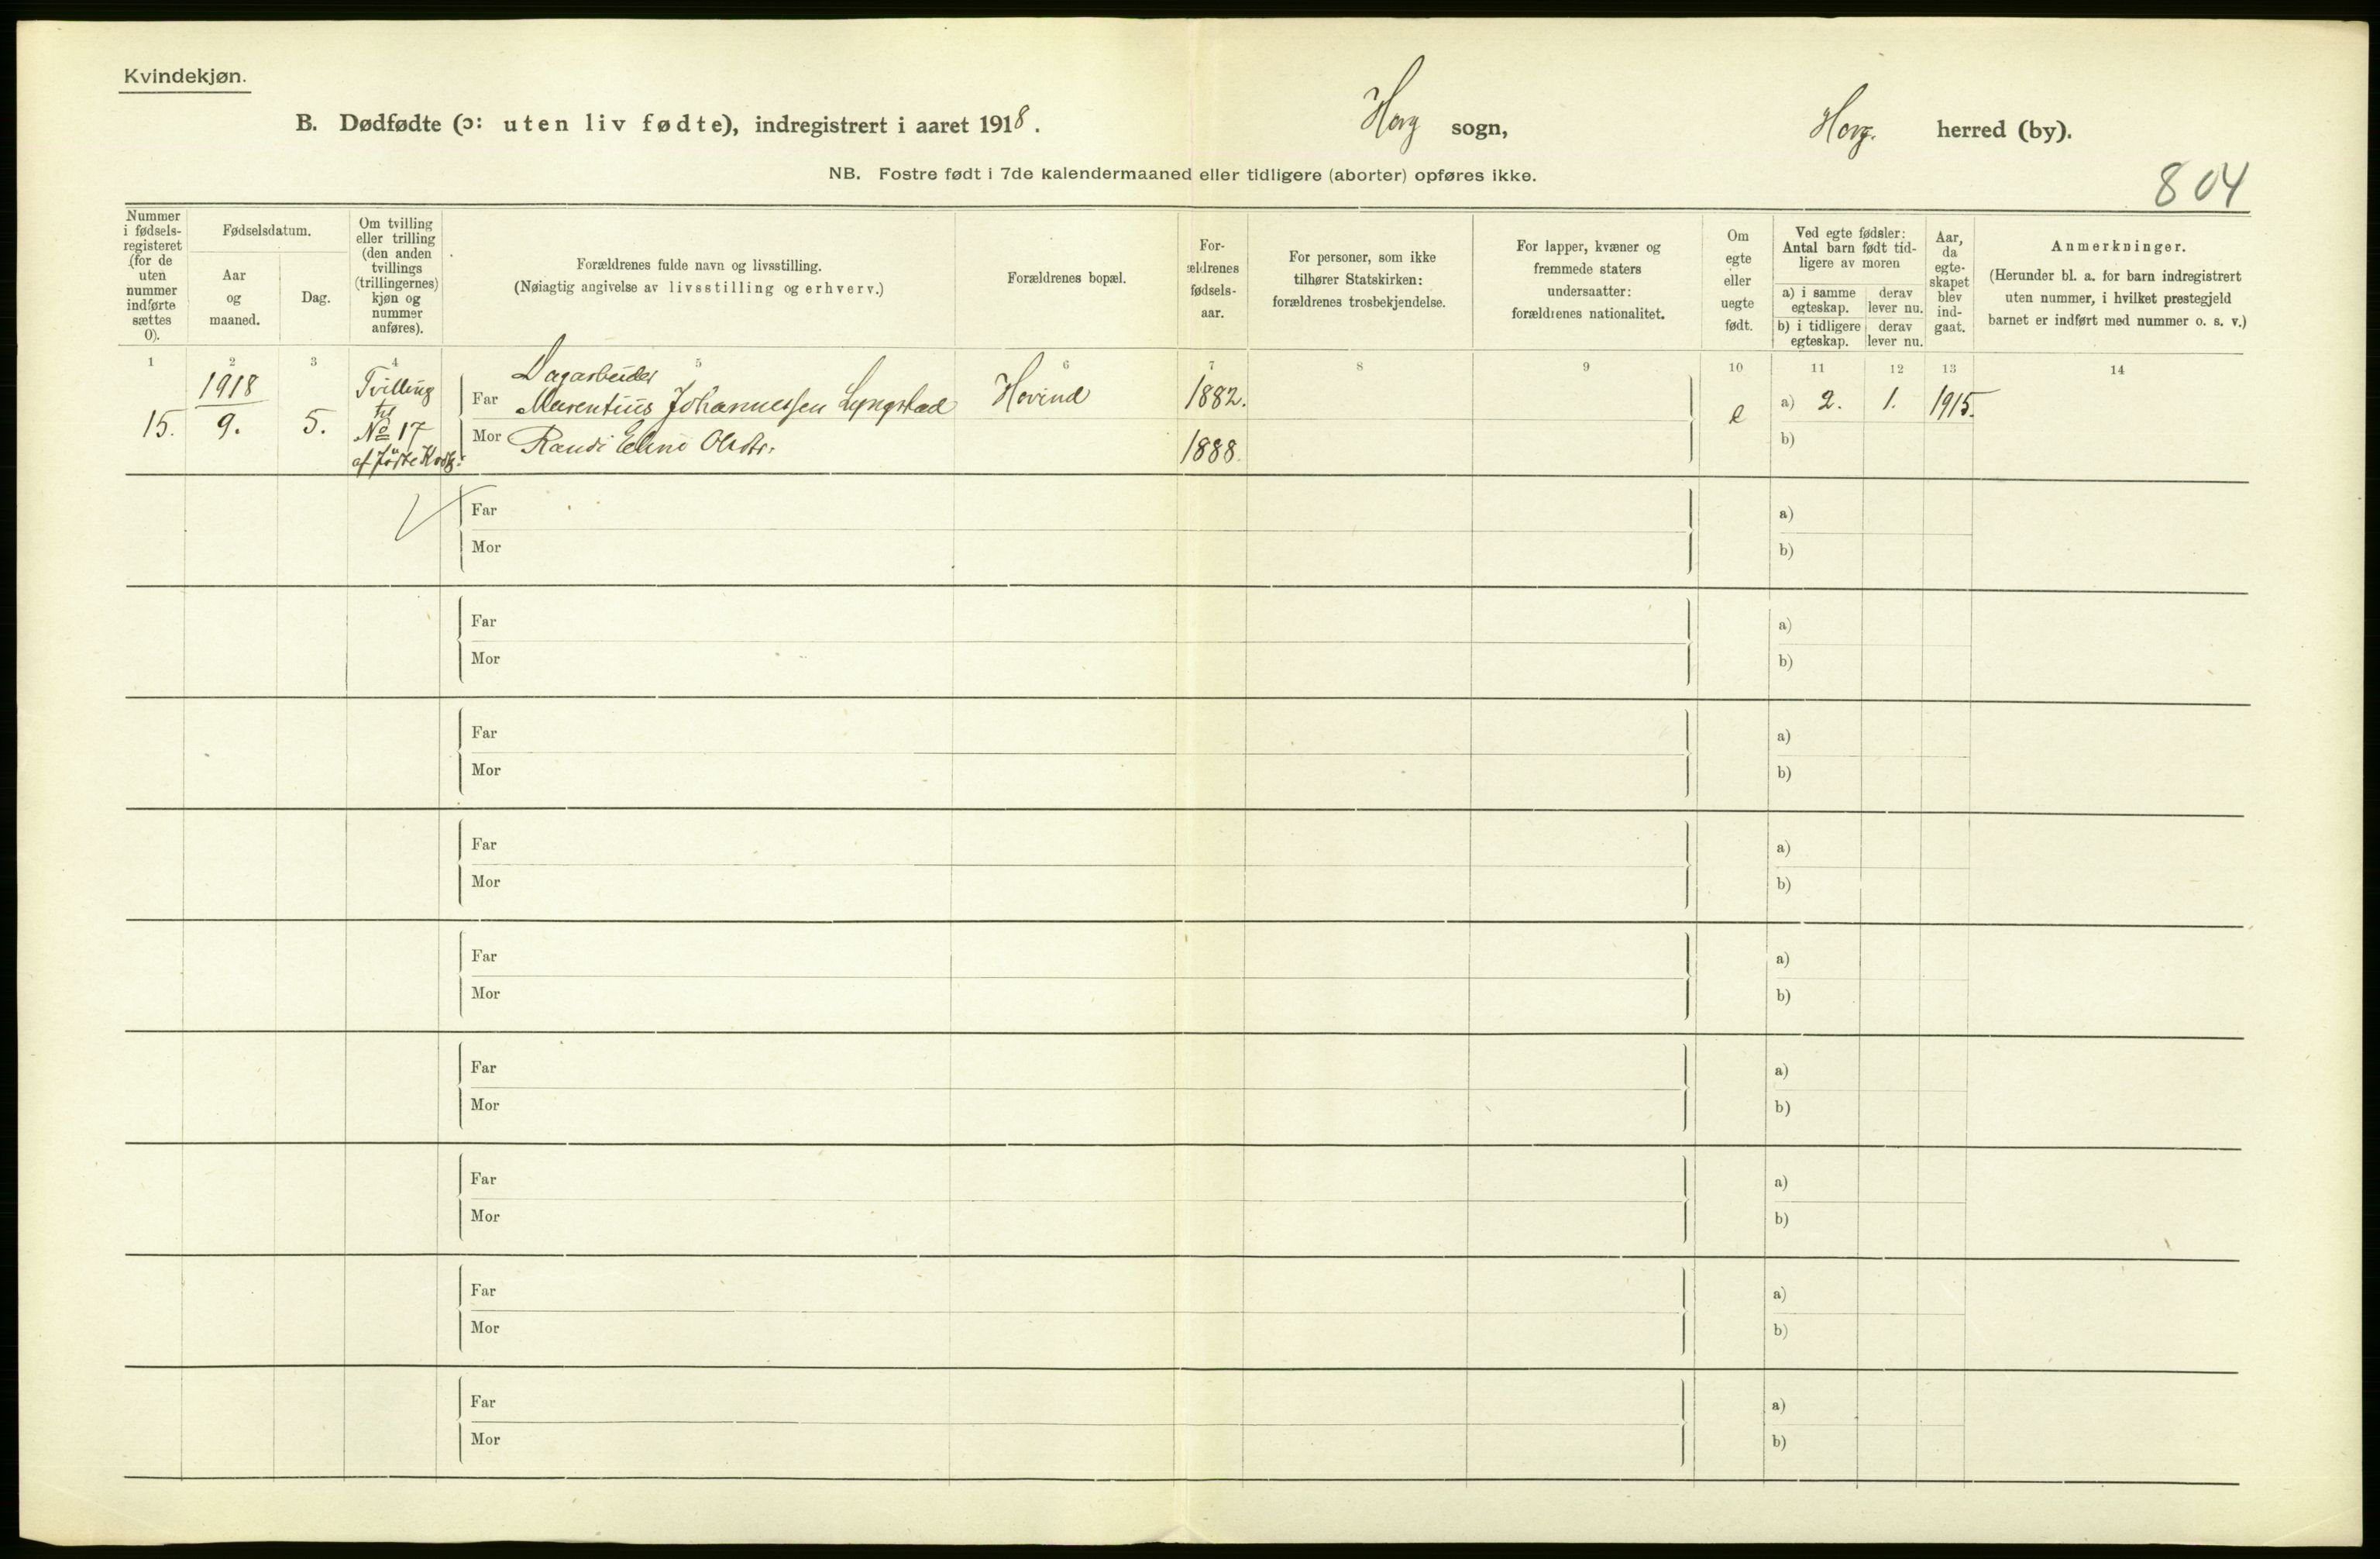 Kvindekjøn.
B. Dødfødte (ɔ: uten liv fødte), indregistrert i aaret 1918. Horg sogn, Horg. herred (by).
NB. Fostre født i 7de kalendermaaned eller tidligere (aborter) opføres ikke.
804
Nummer
i fødsels-
registeret
(for de
uten
nummer
indførte
sættes
0).
Fødselsdatum.
Aar
og
maaned.
Dag.
Om tvilling
eller trilling
(den anden
tvillings
(trillingernes)
kjøn og
nummer
anføres).
Forældrenes fulde navn og livsstilling.
(Nøiagtig angivelse av livsstilling og erhverv.)
Forældrenes bopæl.
For-
ældrenes
fødsels-
aar.
For personer, som ikke
tilhører Statskirken:
forældrenes trosbekjendelse.
For lapper, kvæner og
fremmede staters
undersaatter:
forældrenes nationalitet.
Om
egte
eller
uegte
født.
Ved egte fødsler:
Antal barn født tid-
ligere av moren
a) i samme
egteskap.
derav
lever nu.
b) i tidligere
egteskap.
derav
lever nu.
Aar,
da
egte-
skapet
blev
ind-
gaat.
Anmerkninger.
(Herunder bl. a. for barn indregistrert
uten nummer, i hvilket prestegjeld
barnet er indført med nummer o. s. v.)
1 2 3 4 5 6 7 8 9 10 11 12 13 14
15.
1918
9.
5.
Tvilling
til
No 17
af fødte
Dagarbeider
Far Marentius Johannessen Lyngstad
Mor Randi Oldtr.
Hovind
1882.
1888.
e
a) 2. 1. 1915.
b)
Far a)
Mor b)
Far a)
Mor b)
Far a)
Mor b)
Far a)
Mor b)
Far a)
Mor b)
Far a)
Mor b)
Far a)
Mor b)
Far a)
Mor b)
Far a)
Mor b)